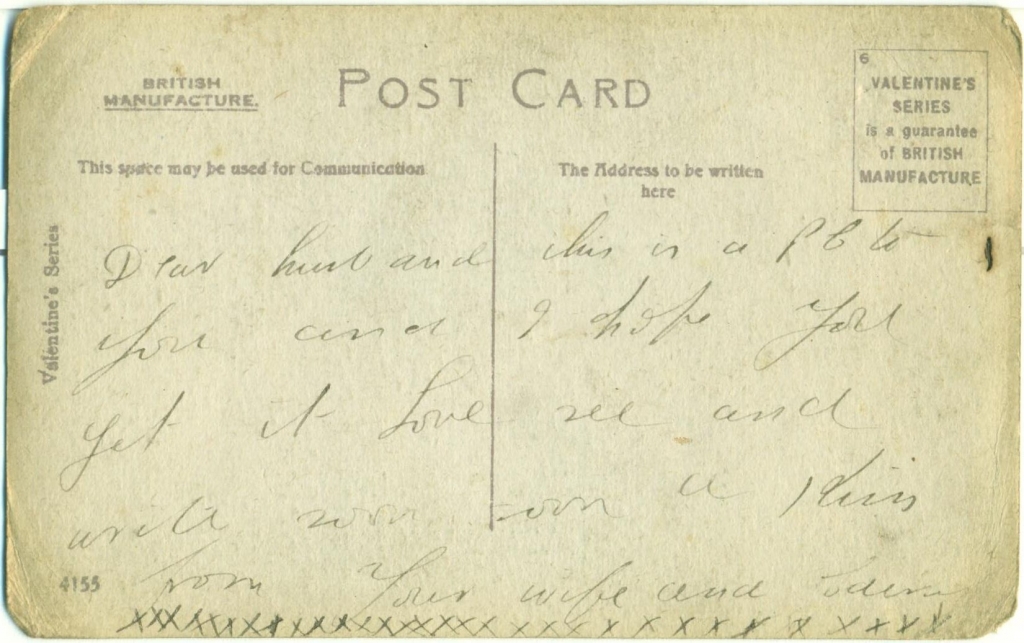 BRITISH
MANUFACTURE.
POST CARD
6
VALENTINE'S
SERIES
is a guarantee
of BRITISH
MANUFACTURE
This space may be used for Communication
The Address to be written
here
Valentine's Series
Dear husband this is a PC to
you and I hope you
get it Love and
write soon soon a Kiss
from Your wife and
4155
XXXXXXXXXXXXXXXXXXXXXX